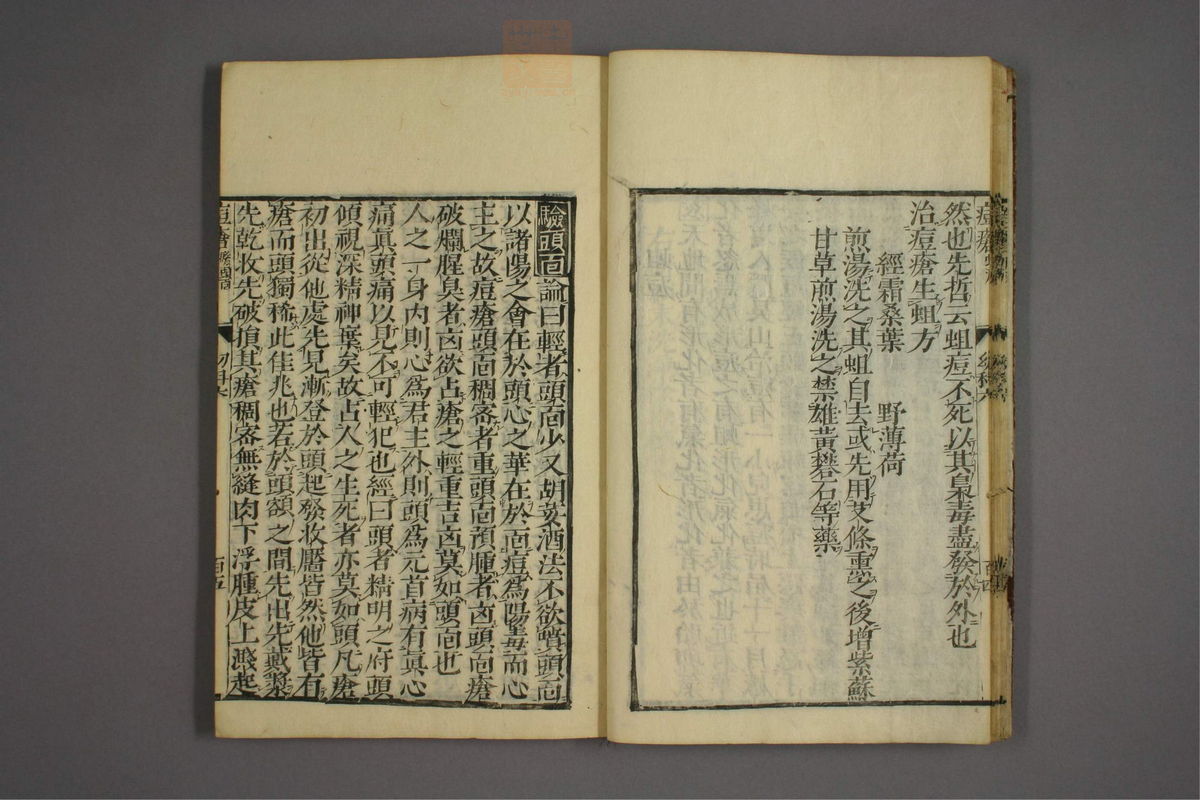 然也先哲云蛆痘不死以其梟毒盡發於外也
治痘瘡生蛆方
經霜桑葉　野薄荷
煎湯洗之其蛆自去或先用艾條熏之後增紫蘇
甘草煎湯洗之禁雄黃礬石等藥
驗頭面
論曰輕者頭面少又胡荽酒法不欲噀頭面
以諸陽之會在於頭心之華在於面痘為陽毒而心
主之故痘瘡頭面稠密者重頭面預腫者凶頭面瘡
破爛腥臭者凶欲占瘡之輕重吉凶莫如頭面也
人之一身內則心為君主外則頭為元首病有真心
痛真頭痛以見不可輕犯也經曰頭者精明之府頭
傾視深精神奪矣故占人之生死者亦莫如頭凡瘡
初出從他處先見漸登於頭起發收靨皆然他皆有
瘡而頭獨稀此佳兆也若於頭額之間先出先戴漿
先乾收先破損其瘡稠密無縫肉下浮腫皮上潑起
痘瘡
幼科六